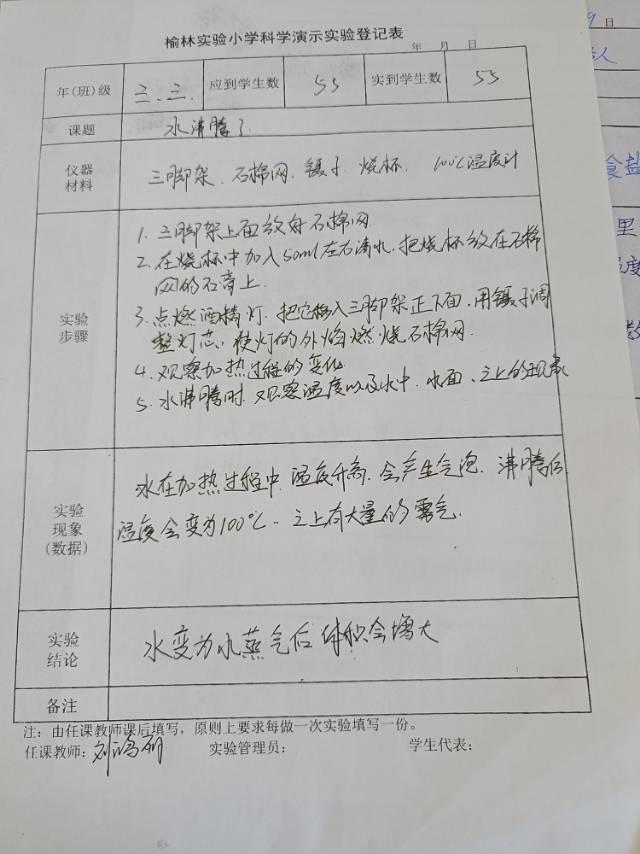 榆林实验小学科学演示实验登记表
年 月 日
年(班)级 三.三 应到学生数 55 实到学生数 55
课题 水沸腾了
仪器材料 三脚架. 石棉网. 镊子. 烧杯. 100℃温度计
实验步骤
1. 三脚架上面放好石棉网
2. 在烧杯中加入50ml左右清水. 把烧杯放在石棉
网的石膏上.
3. 点燃酒精灯. 把它移入三脚架正下面, 用镊子调
整灯芯, 使灯的外焰燃烧石棉网.
4. 观察加热过程的变化
5. 水沸腾时. 观察温度以及水中. 水面、之上的现象
实验现象(数据)
水在加热过程中. 温度升高. 会产生气泡. 沸腾后
温度会变为100℃. 之上有大量的雾气.
实验结论 水变为水蒸气后体积会增大
备注
注: 由任课教师课后填写，原则上要求每做一次实验填写一份。
任课教师: 实验管理员: 学生代表:
9 日
人
食盐
里
温度
数